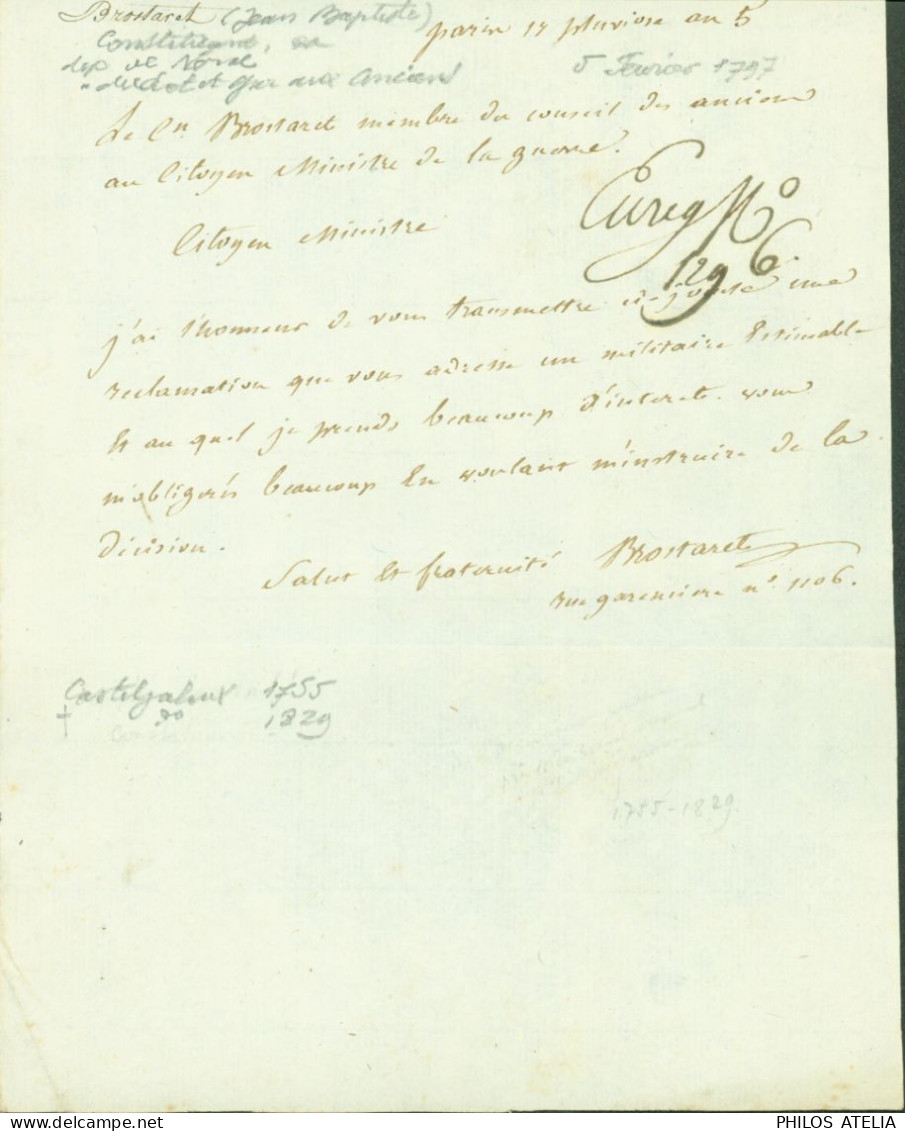 Brostaret (Jean Baptiste)
Constituant,
dep de Nérac
du Lot et Gar aux Anciens
paris 17 pluviose an 5
5 Fevrier 1797
Le Cn Brostaret membre du conseil des anciens
au Citoyen Ministre de la guerre.
Citoyen Ministre
Enreg No
1296
j'ai l'honneur de vous transmettre ci-jointe une
reclamation que vous adresse un militaire Estimable
Et au quel je prends beaucoup d'interet. vous
m'obligerés beaucoup En voulant m'instruire de la
décision.
Salut Et fraternité Brostaret
rue garenciere n° 1106.
Casteljaloux 1755
† do 1829
1755-1829
PHILOS ATELIA